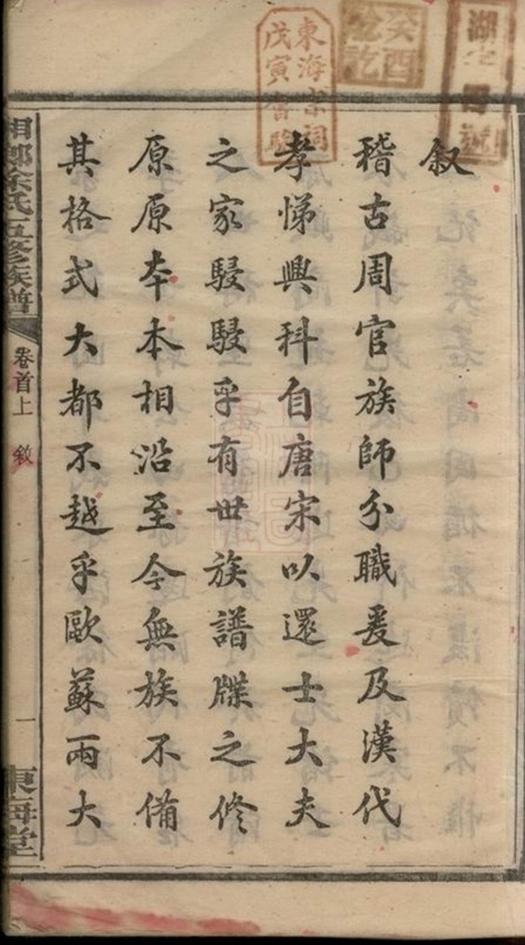 叙
稽古周官族師分職爰及漢代
孝悌興科自唐宋以還士大夫
之家駸駸乎有世族譜牒之修
原原本本相沿至今無族不備
其格式大都不越乎歐蘇兩大
湘鄉徐氏五修族譜
卷首上
敘
一
東海堂
東海宗祠
戊寅
癸酉